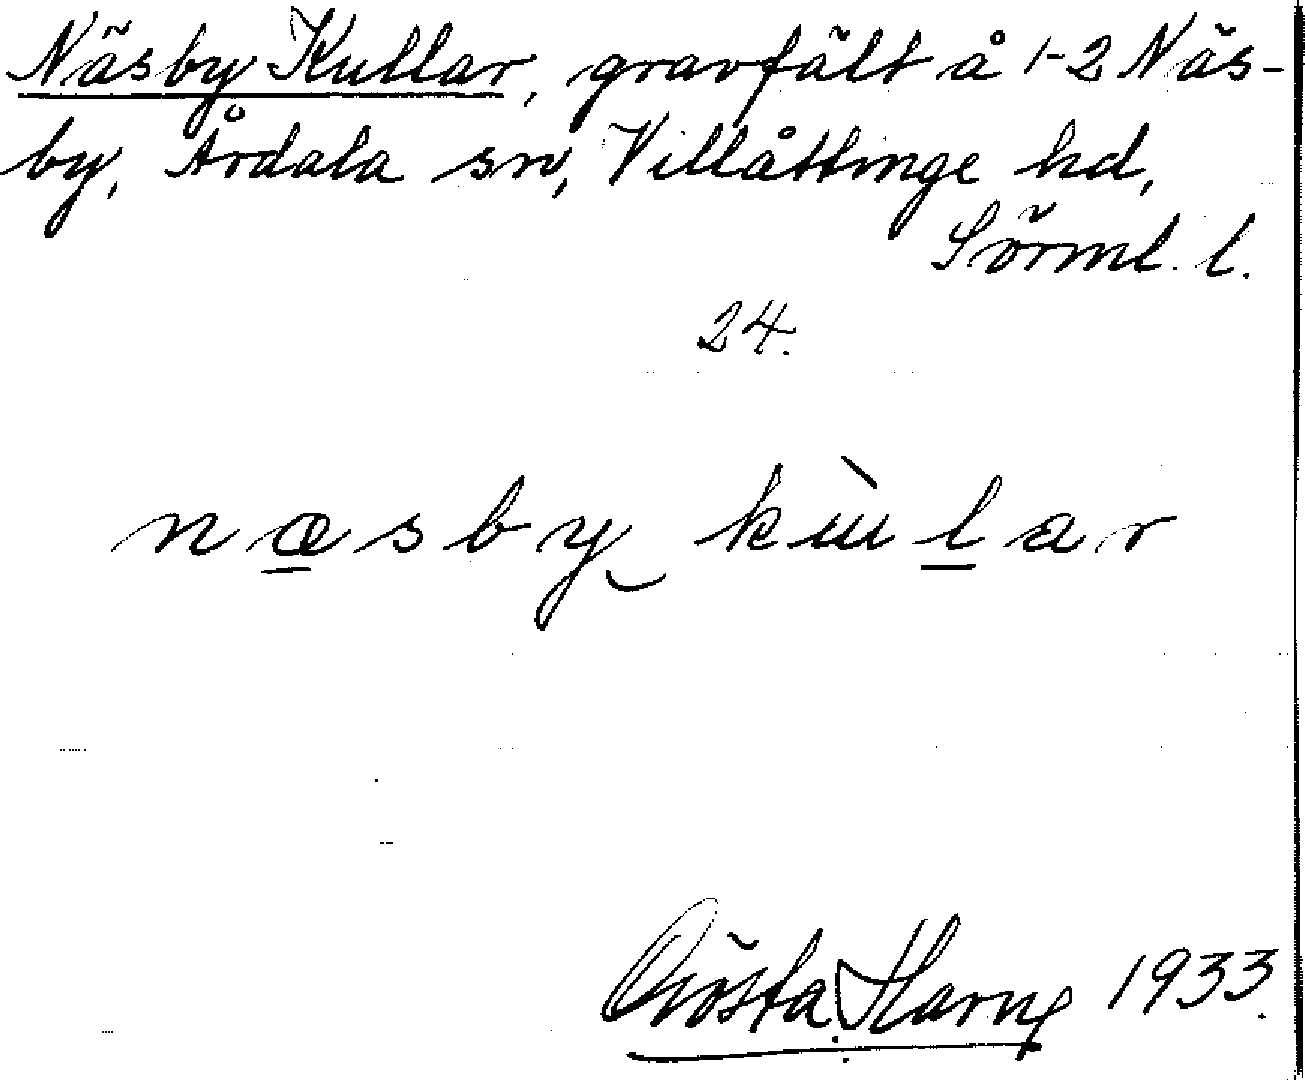 Näsby Kullar, gravfält å 1-2 Näs-
by, Årdala sn, Villåttinge hd,
Sörml. l.
24.
næsby kùlar
Gösta Harng 1933.